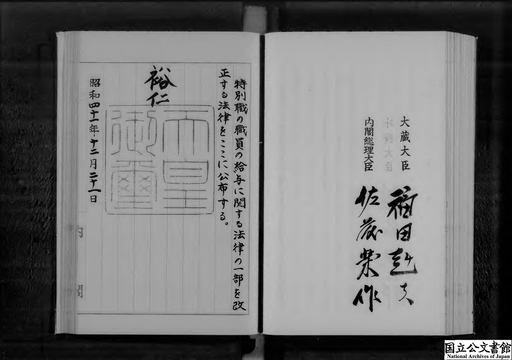 特別職の職員の給与に関する法律の一部を改
正する法律をここに公布する。
裕仁
天皇
御璽
昭和四十一年十二月二十一日
大蔵大臣 福田赳夫
内閣総理大臣 佐藤榮作
国立公文書館
National Archives of Japan